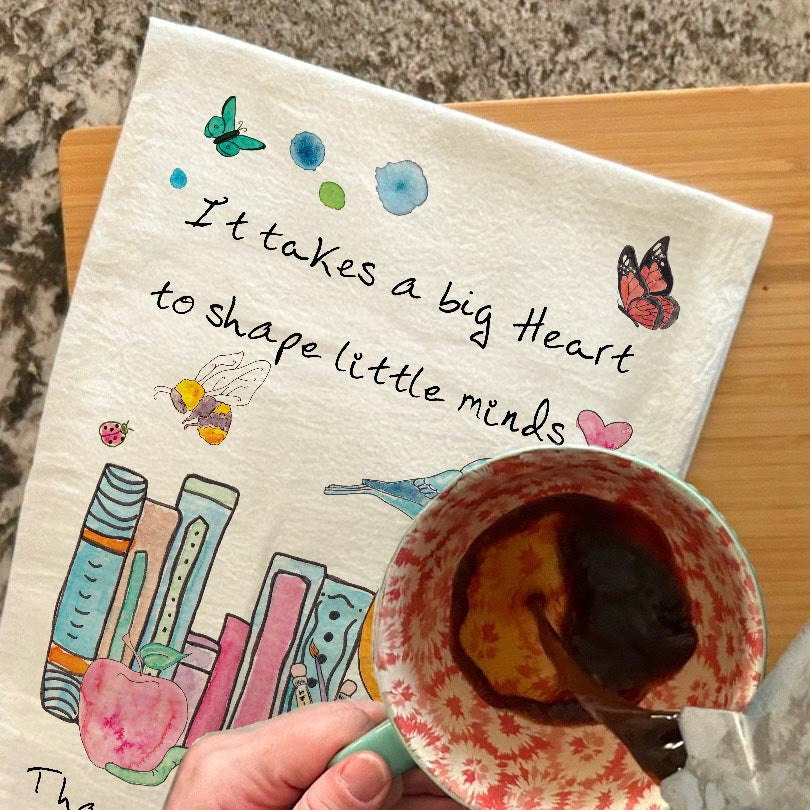 It takes a big Heart
to shape little minds
Tha